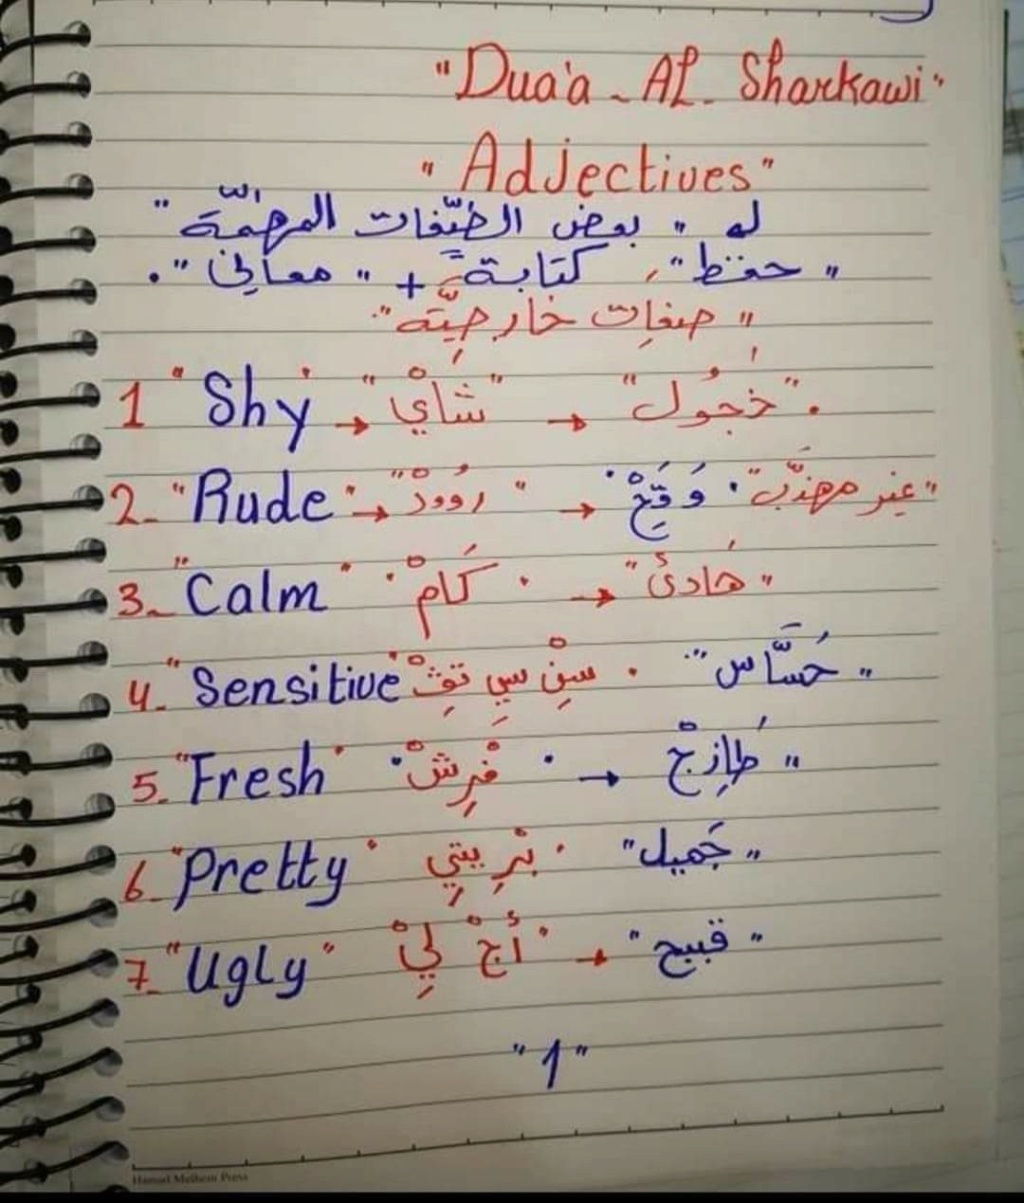 "Dua'a - Al - Sharkawi"
"Adjectives"
له " بعض الصِّفات المهمّة "
" حفظ " ، كتابةً + " معاني " .
" صفات خارجيَّة "
1 " Shy " → " شَايْ " → " خَجُول " .
2- " Rude " → " رُوودْ " → وَقِحْ . " غير مهذَّب "
3- " Calm " . كَامْ . → " هَادئ "
4- " Sensitive " سِنْ سِي تِڤْ . " حَسَّاس "
5- " Fresh " . فْرِشْ . → " طَازِجْ "
6- " Pretty " بْرِيتِي . " جَميل "
7- " UgLy " أَجْ لِيْ " → " قبيح "
" 1 "
Hamad Melhem Press